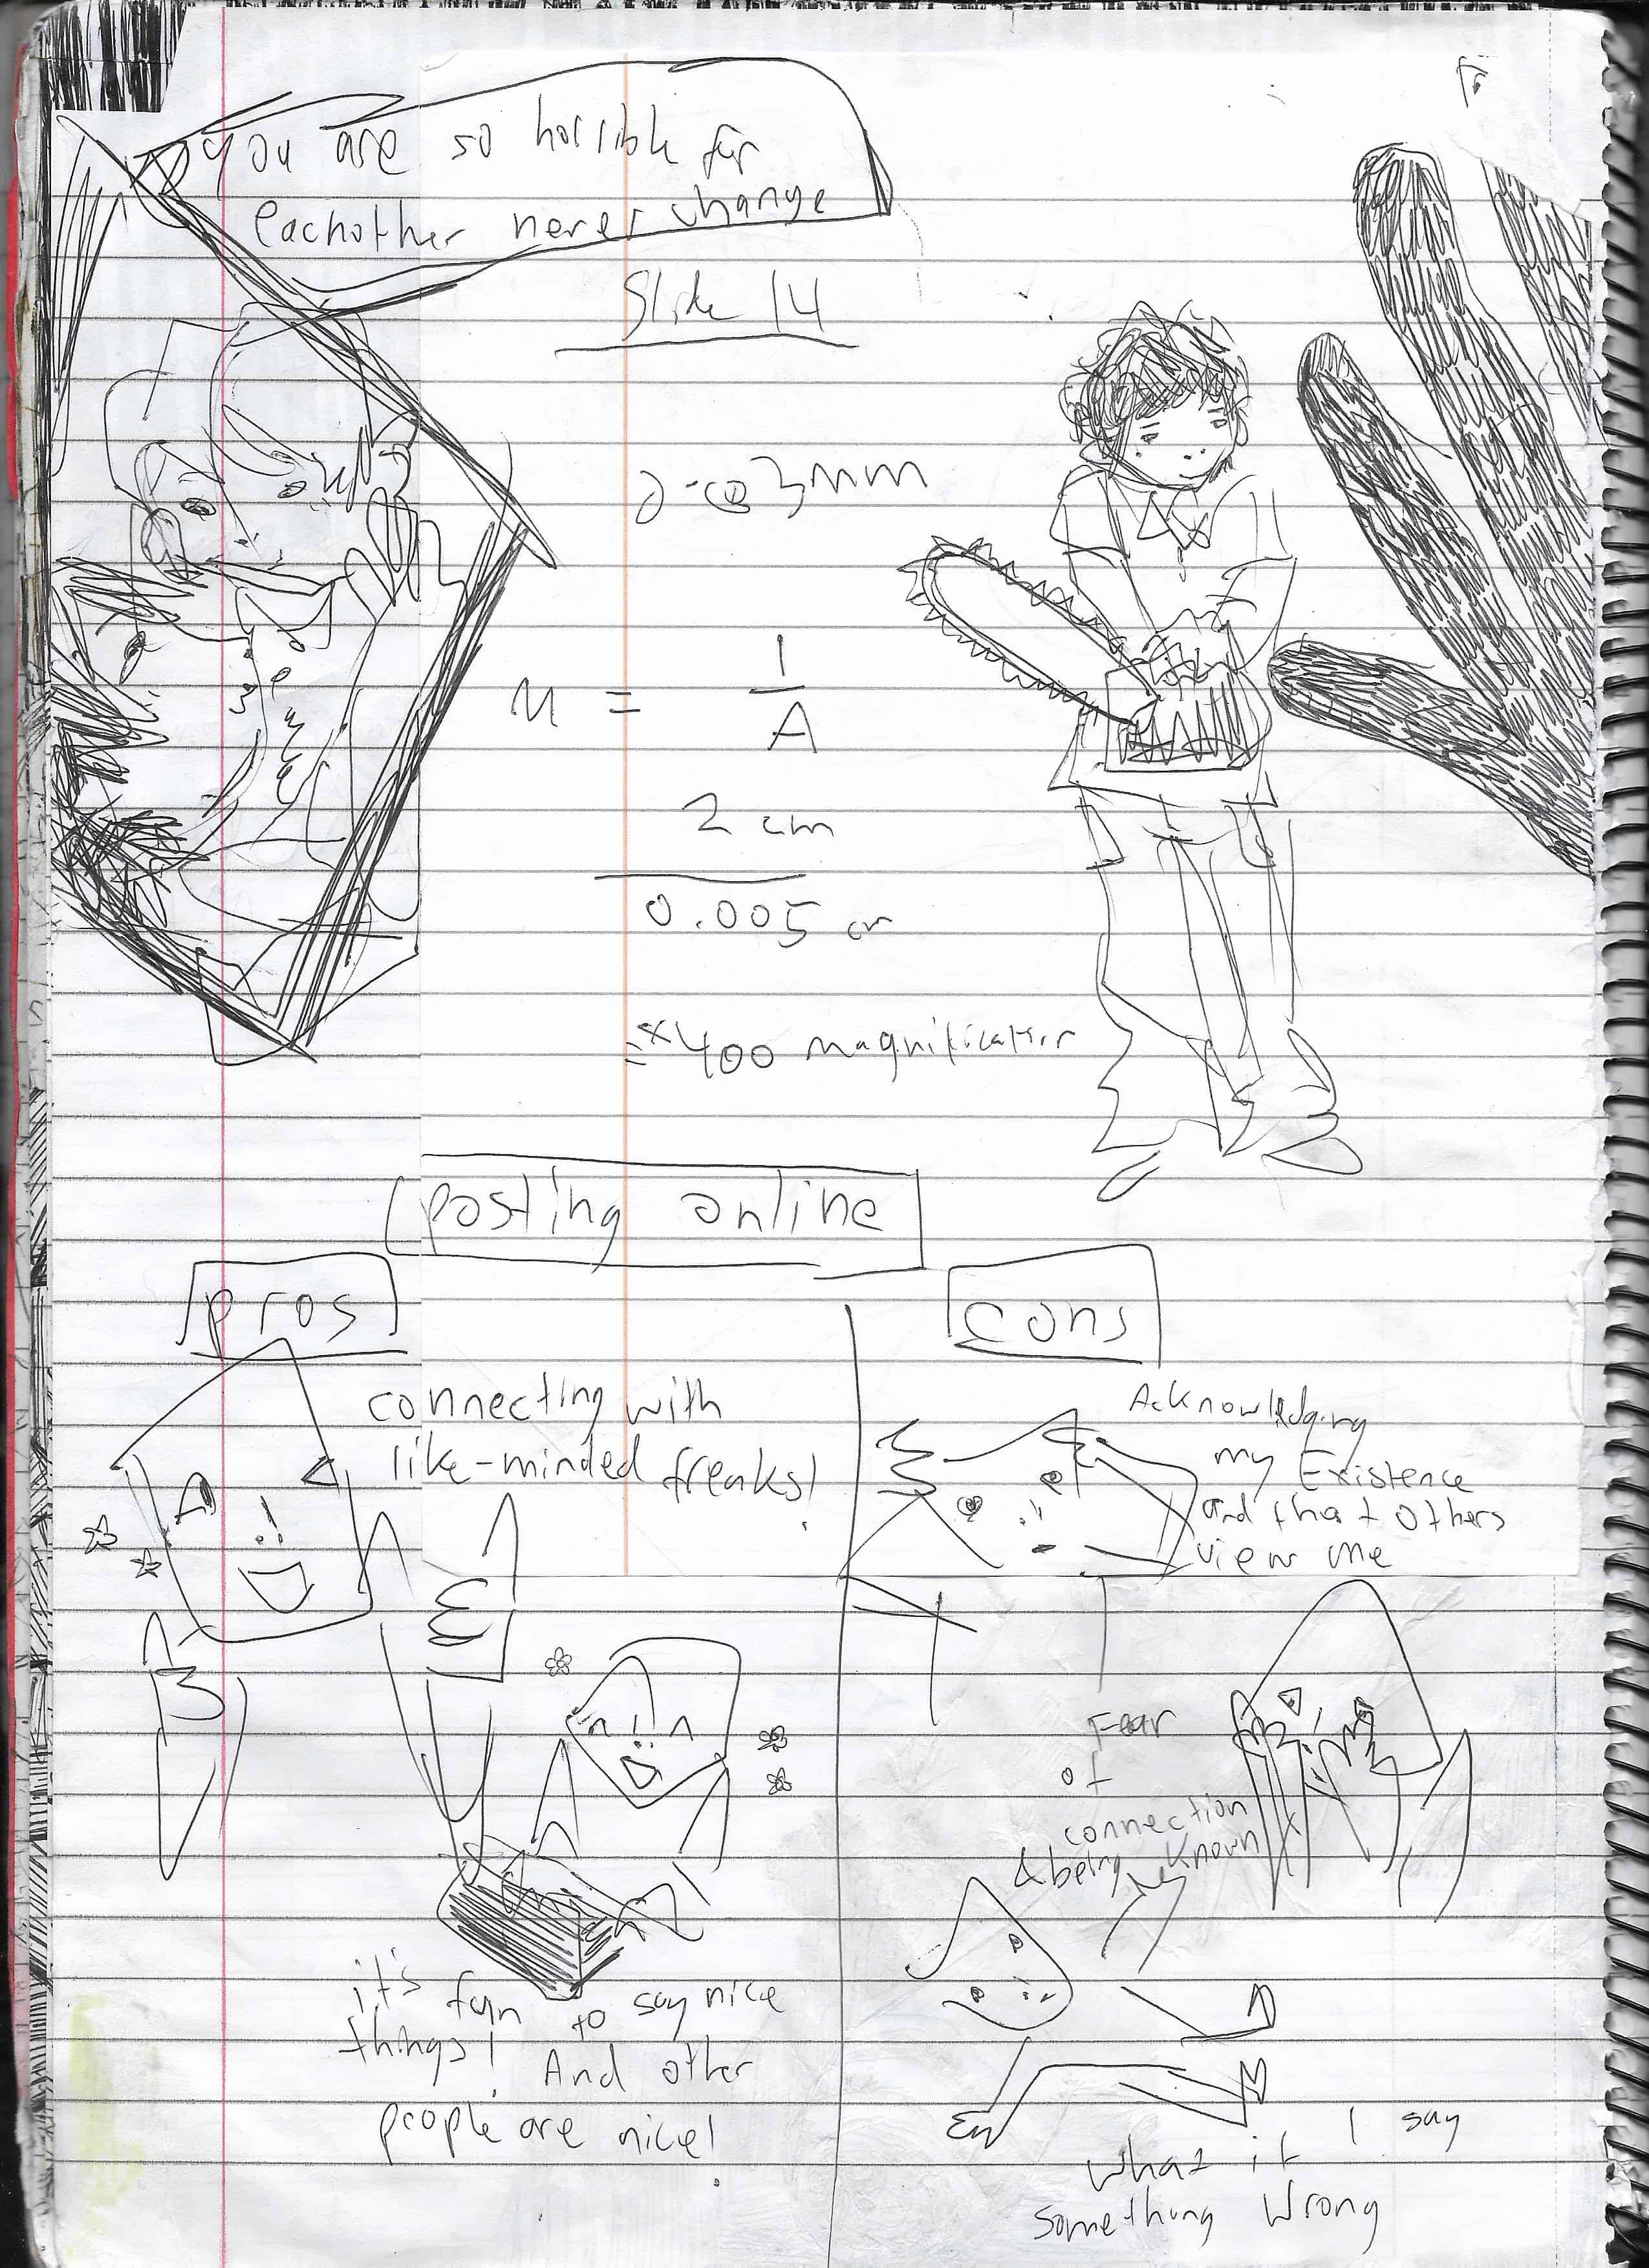 you are so horrible for
eachother never change
Slide 14
M = 1
A
2 cm
0.005 cm
= x400 magnification
posting online
pros
cons
connecting with
like-minded freaks!
it's fun to say nice
things! And other
people are nice!
Acknowledging
my Existence
and that others
view me
Fear
of
connection
& being known
what if I say
something wrong